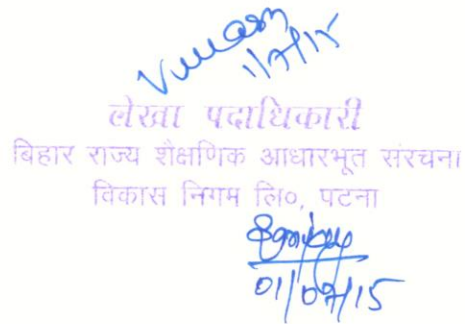 1/7/15
लेखा पदाधिकारी
बिहार राज्य शैक्षणिक आधारभूत संरचना
विकास निगम लि०, पटना
01/07/15